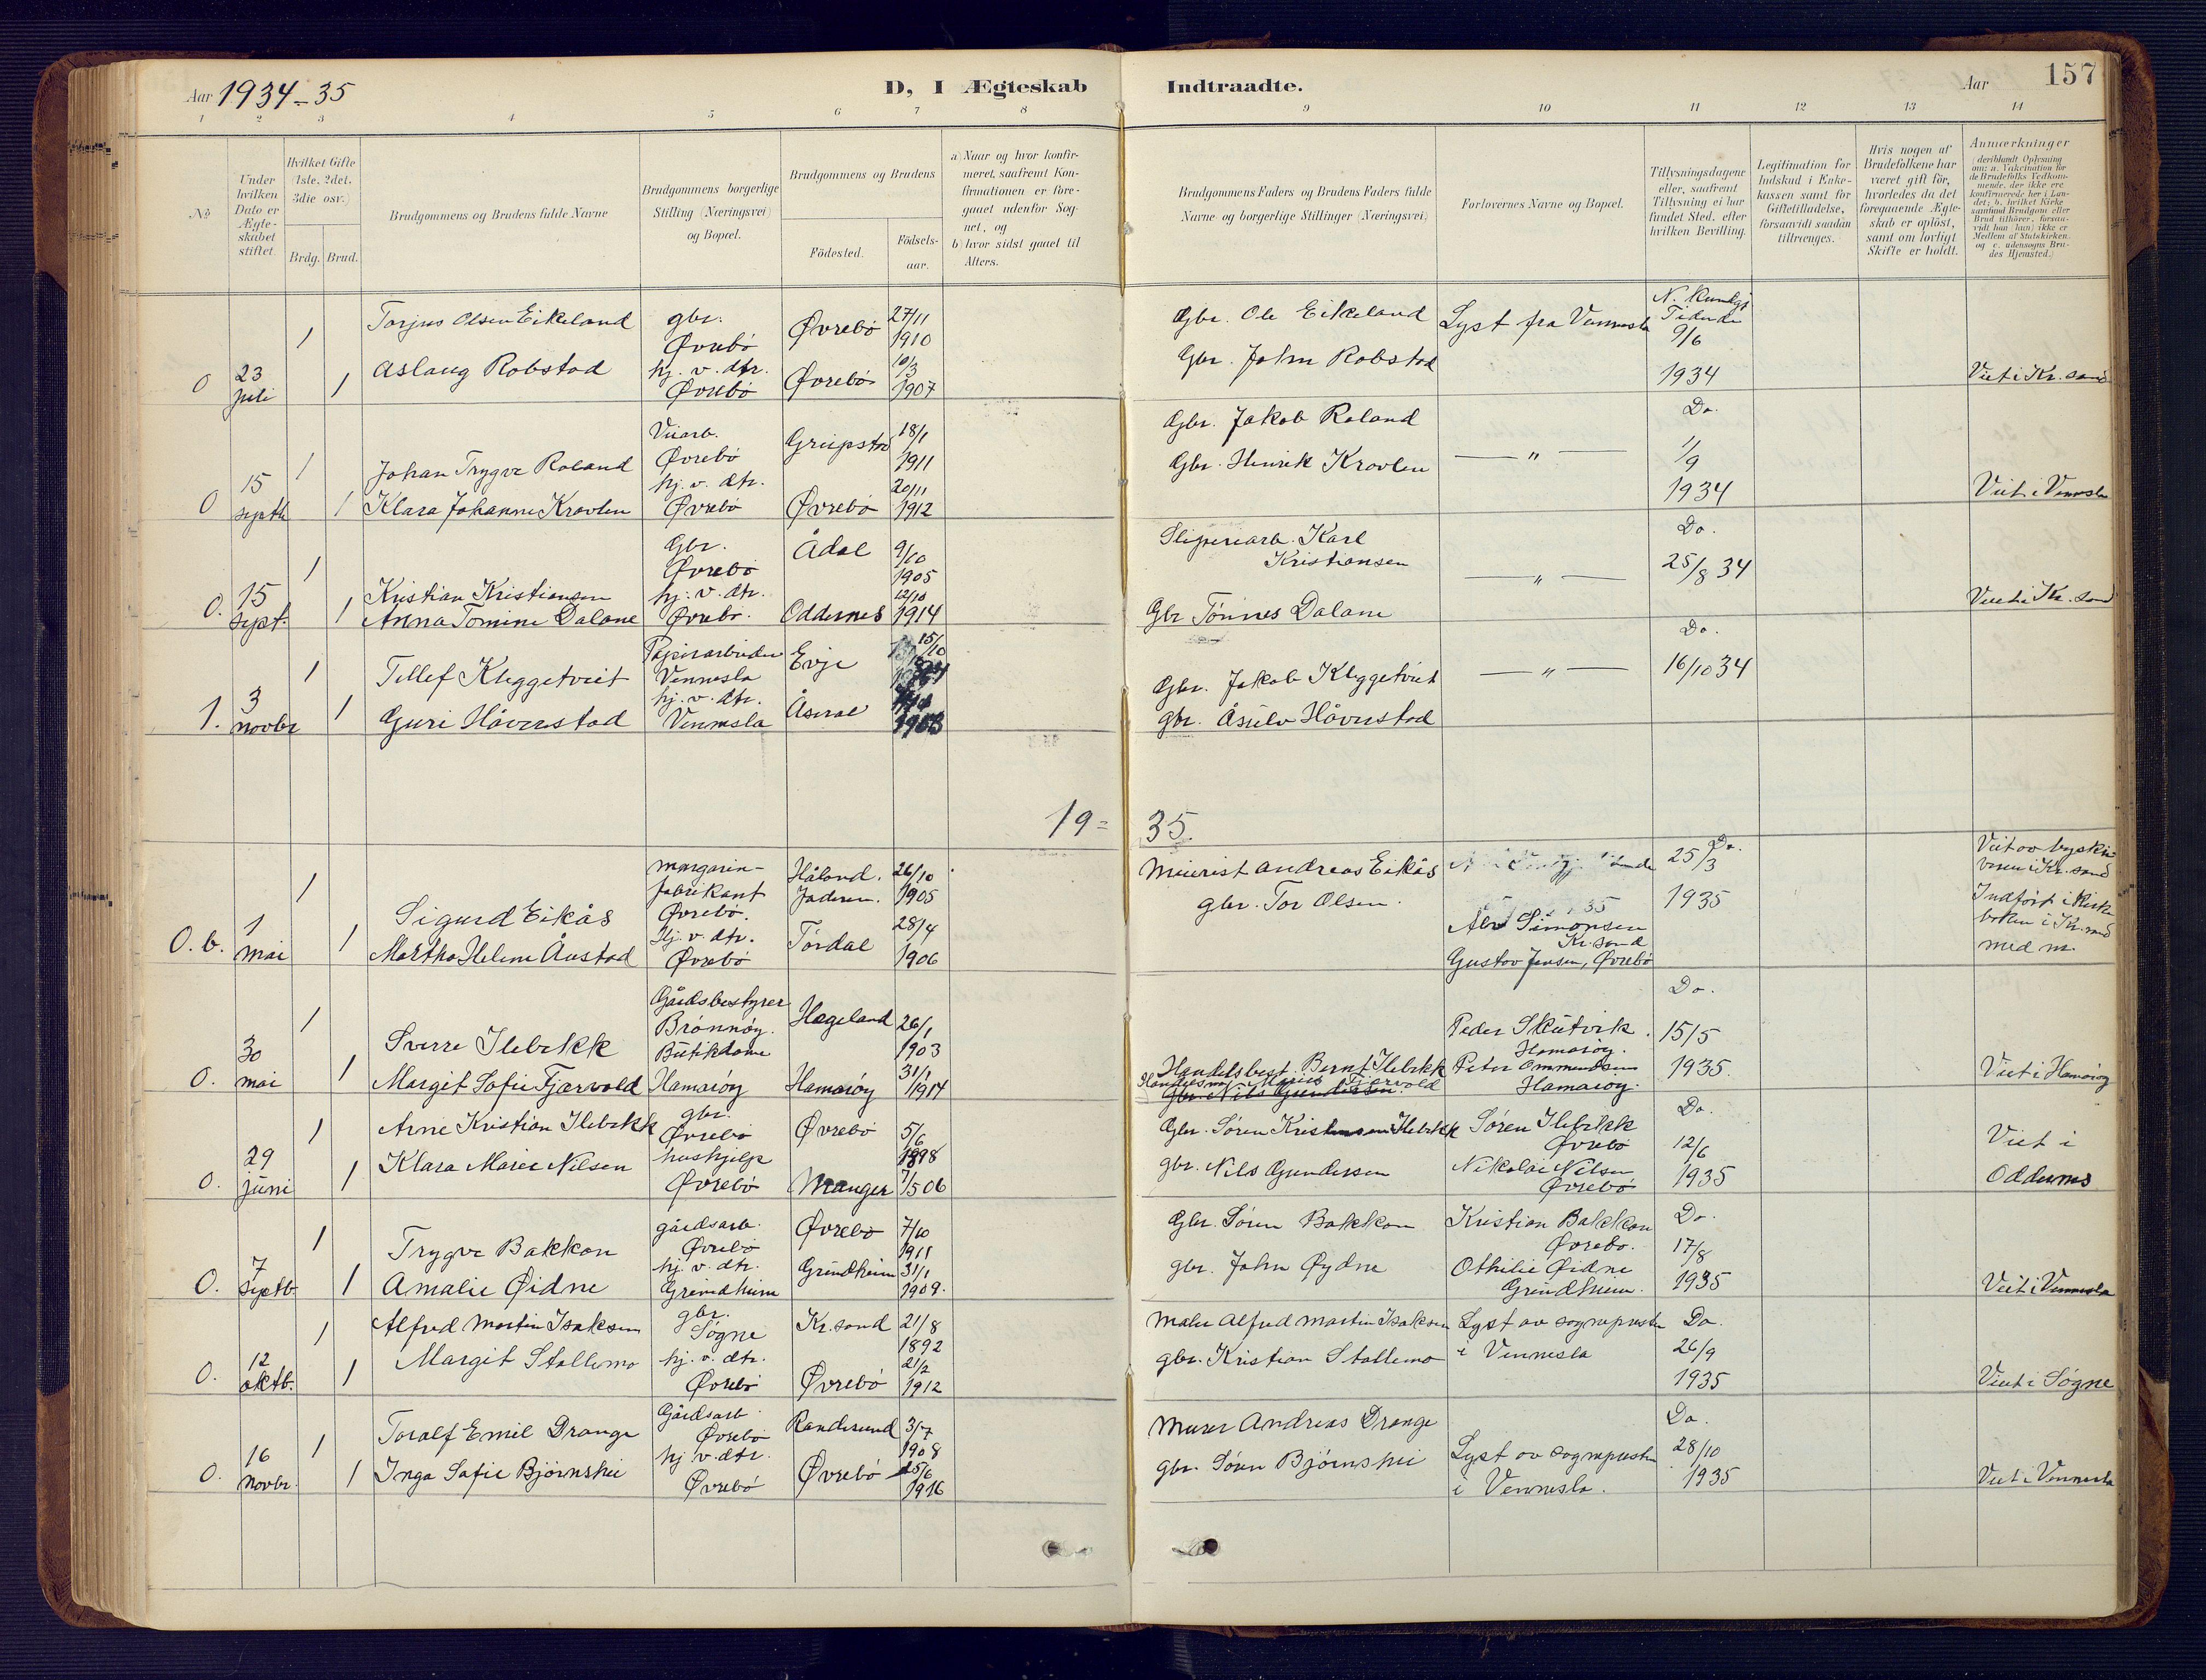 Aar 1934-35
D, I Ægteskab Indtraadte.
Aar 157
1 2 3 4 5 6 7 8 9 10 11 12 13 14
No
Under hvilken Dato er Ægteskabet stiftet.
Hvilket Gifte (1ste, 2det, 3die osv.)
Brdg. Brud.
Brudgommens og Brudens fulde Navne
Brudgommens borgerlige Stilling (Næringsvei) og Bopæl.
Brudgommens og Brudens
Födested.
Födselsaar.
a) Naar og hvor konfirmeret, saafremt Konfirmationen er foregaaet udenfor Sognet, og
b) hvor sidst gaaet til Alters.
Brudgommens Faders og Brudens Faders fulde Navne og borgerlige Stillinger (Næringsvei)
Forlovernes Navne og Bopæl.
Tillysningsdagene eller, saafremt Tillysning ei har fundet Sted, efter hvilken Bevilling.
Legitimation for Indskud i Enkekassen samt for Giftetilladelse, forsaavidt saadan tiltrænges.
Hvis nogen af Brudefolkene har været gift för, hvorledes da det foregaaende Ægteskab er oplöst, samt om lovligt Skifte er holdt.
Anmærkninger
(deriblandt Oplysning om: a. Vakcination for de Brudefolks Vedkommende, der ikke ere konfirmerede her i Landet; b. hvilket Kirkesamfund Brudgom eller Brud tilhörer, forsaavidt han (hun) ikke er Medlem af Statskirken, og c. udensogns Brudes Hjemsted.)
0 23 juli 1 1
Torjus Olsen Eikeland
Aslaug Robstad
gbr. Øvrebö
hj. v. dtr. Øvrebö
Øvrebö 27/11 1910
Øvrebö 10/3 1907
Gbr. Ole Eikeland
Gbr. John Robstad
Lyst fra Vennesla
N. Kunngj Tidende 9/6 1934
Viet i Kr. sand
0 15 septb 1 1
Johan Trygve Roland
Klara Johanne Kravlen
Øvrebö
hj. v. dtr. Øvrebö
Greipstad 18/1 1911
Øvrebö 20/11 1912
Gbr. Jakob Roland
Gbr. Henrik Kravlen
— " —
Do. 1/9 1934
Viet i Vennesla
0. 15 sept. 1 1
Kristian Kristiansen
Anna Tomine Dalane
Gbr. Øvrebö
hj. v. dtr. Øvrebö.
Ådal 9/10 1905
Oddernes 12/10 1914
Sliperiarb. Karl Kristiansen
Gbr Tönnes Dalane
— " —
Do. 25/8 34
Viet i Kr. sand
1. 3 novbr 1 1
Tellef Kleggetveit
Guri Håverstad
Papirarbeider Vennesla
hj. v. dtr. Vennesla
Evje 15/10
Åseral 1903
Gbr. Jakob Kleggetveit
gbr. Åsulv Håverstad
— " —
Do. 16/10 34
19=35.
0. b. 1 mai 1 1
Sigurd Eikås
Martha Helene Åustad
Margarinfabrikant Øvrebö.
Hj. v. dtr. Øvrebö
Håland. Jæderen. 26/10 1905
Tördal 28/4 1906
Meierist Andreas Eikås
gbr. Tor Olsen.
Simonsen Kr. sand
Gustav Jensen, Øvrebö
Do. 25/3 1935
Viet av byskriveren i Kr. sand
Indført i kirkeboken i Kr. sand
med nr.
0. 30 mai 1 1
Sverre Ilebekk
Margit Sofie Fjærvold
Gårdsbestyrer Brönnöy.
Butikdame Hamaröy
Hægeland 26/1 1903
Hamaröy 31/1 1914
Handelsbest. Bernt Ilebekk
Handelsm. Marius Fjærvold
Gbr. Nils Gundersen.
Peder Skutvik. Hamaröy.
Peter Ommundsen Hamaröy.
Do. 15/5 1935.
Viet i Hamaröy
0. 29 juni 1 1
Arne Kristian Ilebekk
Klara Marie Nilsen
gbr. Øvrebö
hushjelp Øvrebö
Øvrebö 5/6 1898
Manger 7/5 06
Gbr. Sören Kristensen Ilebekk
gbr. Nils Gundersen
Sören Ilebekk Øvrebö
Nikolai Nilsen Øvrebö
Do. 12/6 1935
Viet i Oddernes
0. 7 Septb. 1 1
Trygve Bakkan
Amalie Øidne
gårdsarb. Øvrebö
hj. v. dtr. Grindheim
Øvrebö 7/10 1911
Grindheim 31/1 1909.
Gbr. Sören Bakkan
gbr. John Øydne
Kristian Bakkan Øvrebö.
Othilie Øidne Grindheim.
Do. 17/8 1935
Viet i Vennesla
0. 12 oktb. 1 1
Alfred Martin Isaksen
Margit Stallemo
gbr. Søgne
hj. v. dtr. Øvrebö
Kr. sand 21/8 1892
Øvrebö 21/2 1912
Maler Alfred Martin Isaksen
gbr. Kristian Stallemo
Lyst av sognepresten i Vennesla
Do. 26/9 1935
Viet i Søgne
0. 16 Novbr. 1 1
Toralf Emil Drange
Inga Sofie Bjørnshei
Gårdsarb. Øvrebö
hj v. dtr. Øvrebö
Randesund 3/7 1908
Øvrebö 25/6 1916
Murer Andreas Drange
gbr. Sören Bjørnshei
Lyst av sognepresten i Vennesla.
Do. 28/10 1935
Viet i Vennesla